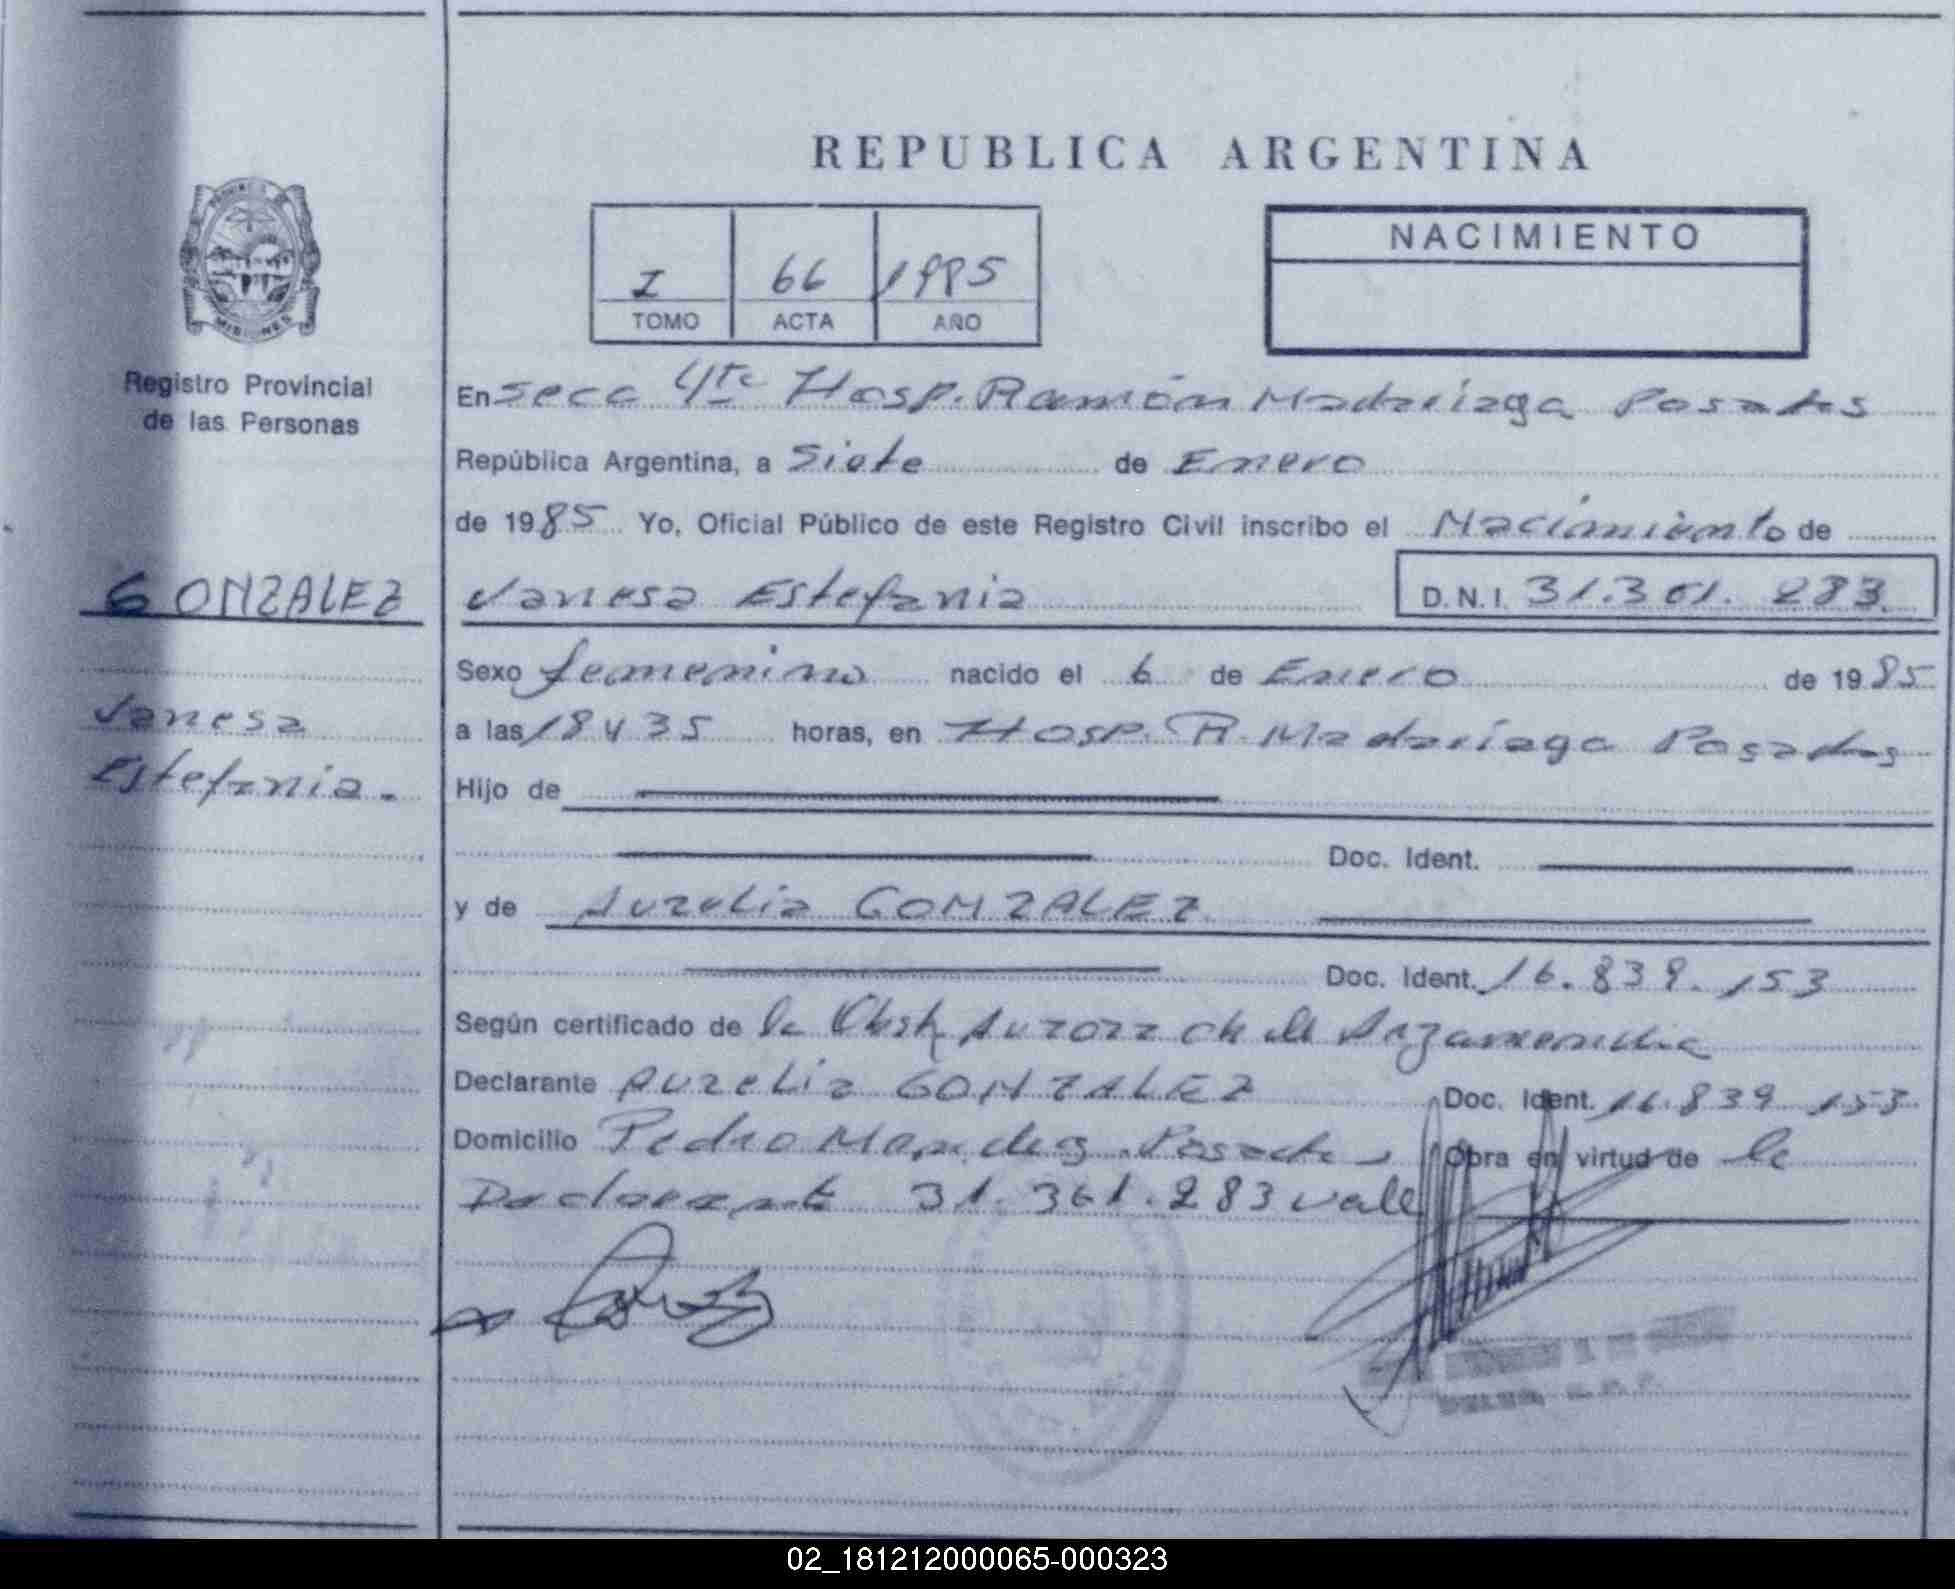 REPUBLICA ARGENTINA
I 66 1985
TOMO ACTA AÑO
NACIMIENTO
MISIONES
Registro Provincial
de las Personas
En Secc 4ta Hosp. Ramón Madariaga Posadas
República Argentina, a Siete de Enero
de 1985 Yo, Oficial Público de este Registro Civil inscribo el Nacimiento de
GONZALEZ
Vanesa Estefania D.N.I. 31.361.283
Sexo femenino nacido el 6 de Enero de 1985
Vanesa
Estefania.
a las 18 y 35 horas, en Hosp. R. Madariaga Posadas
Hijo de
Doc. Ident.
y de Aurelia GONZALEZ
Doc. Ident. 16.839.153
Según certificado de la Obst Aurora Ch de Arzamendia
Declarante Aurelia GONZALEZ Doc. Ident. 16.839.153
Domicilio Pedro Mendez Posadas Obra en virtud de la
Declarante 31.361.283 vale
02_181212000065-000323